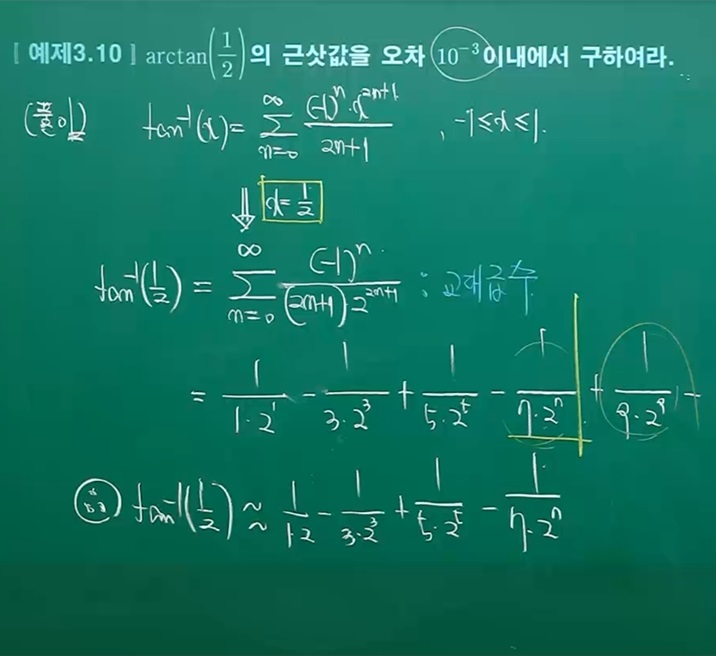 [ 예제3.10 ] arctan(1/2)의 근삿값을 오차 10⁻³이내에서 구하여라.
(풀이) tan⁻¹(x) = ∑_{n=0}^{∞} (-1)ⁿ·x²ⁿ⁺¹ / 2n+1 , -1≤x≤1.
⇓ x = 1/2
tan⁻¹(1/2) = ∑_{n=0}^{∞} (-1)ⁿ / (2n+1)·2²ⁿ⁺¹ : 교대급수
= 1/1·2¹ - 1/3·2³ + 1/5·2⁵ - 1/7·2⁷ + 1/9·2⁹ -
∴ tan⁻¹(1/2) ≈ 1/1·2 - 1/3·2³ + 1/5·2⁵ - 1/7·2⁷